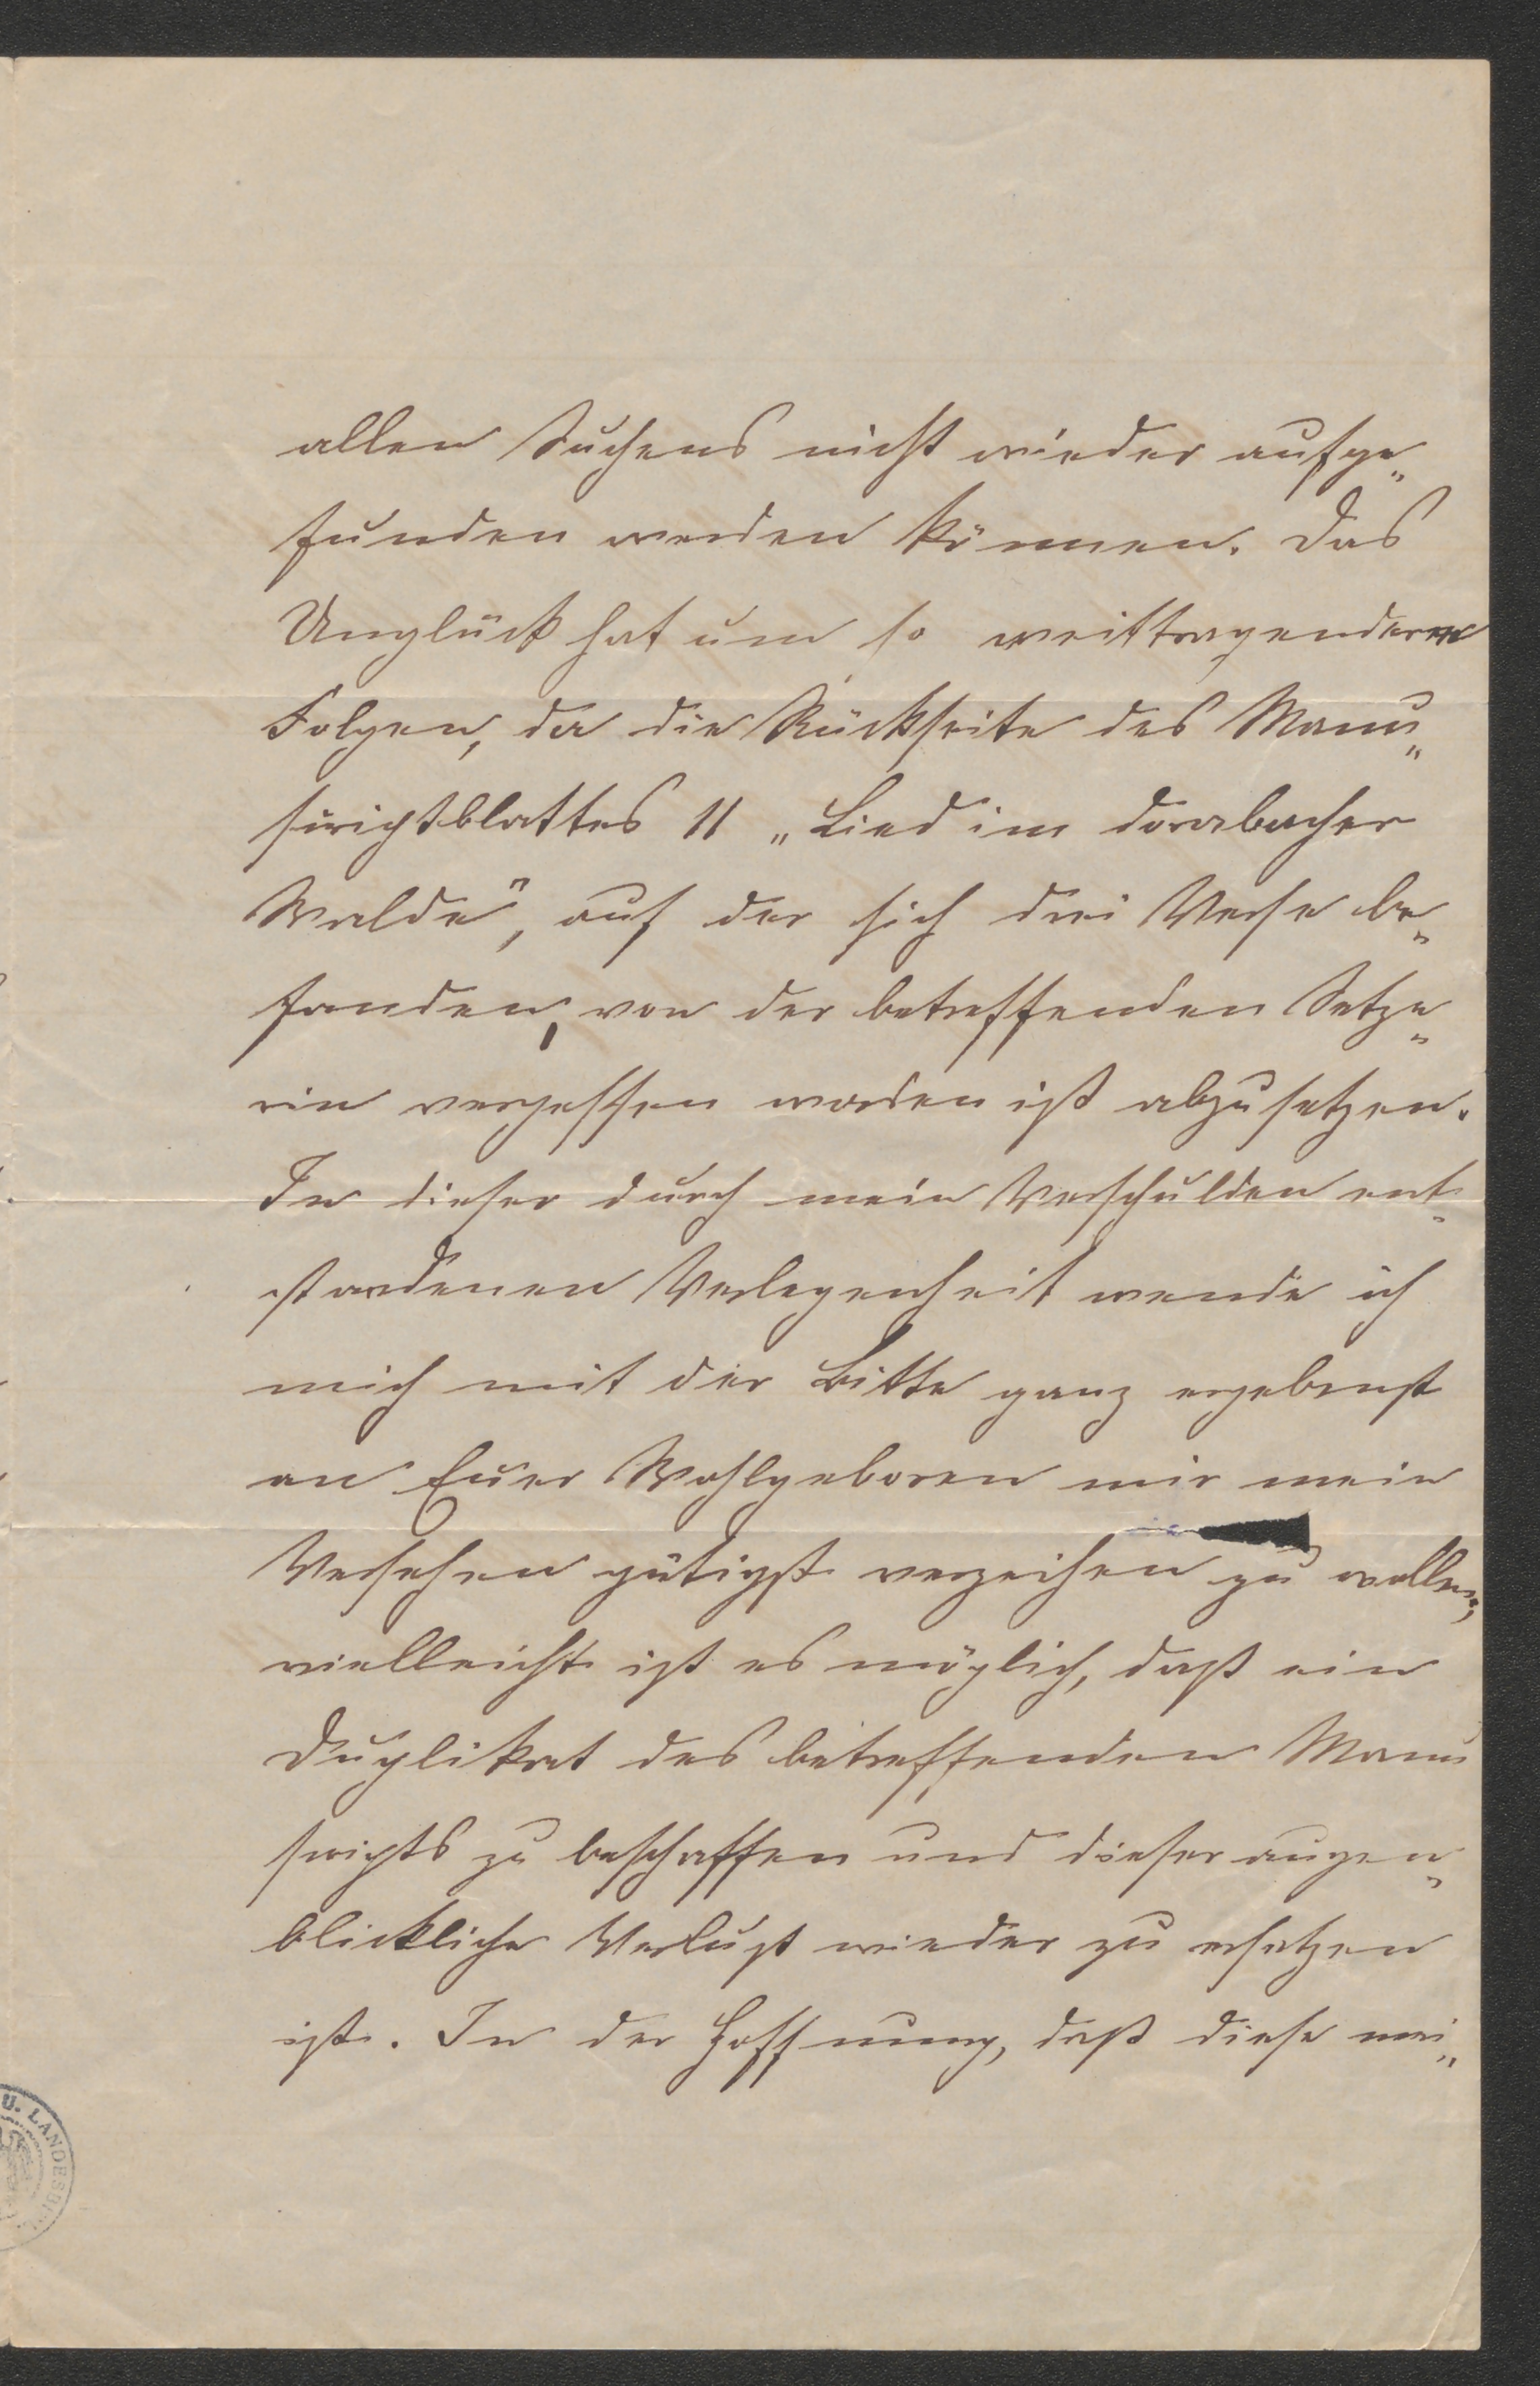 allen Suchens nicht wieder aufge„
funden werden können. Das
Unglück hat um so weittragendere
Folgen, da die Rückseite des Manu„
scriptblattes 11 „Lied im dornbacher
Walde", auf der sich drei Verse be„
fanden, von der betreffenden Setze„
rin vergessen worden ist abzusetzen.
In dieser durch mein Verschulden ent„
standenen Verlegenheit wende ich
mich mit der Bitte ganz ergebenst
an Euer Wohlgeboren mir mein
Versehen gütigst verzeihen zu wollen,
vielleicht ist es möglich, daß ein
Duplikat des betreffenden Manu
scripts zu beschaffen und dieser augen„
blickliche Verlust wieder zu ersetzen
ist. In der Hoffnung, daß diese mei„
U. LANDESBI